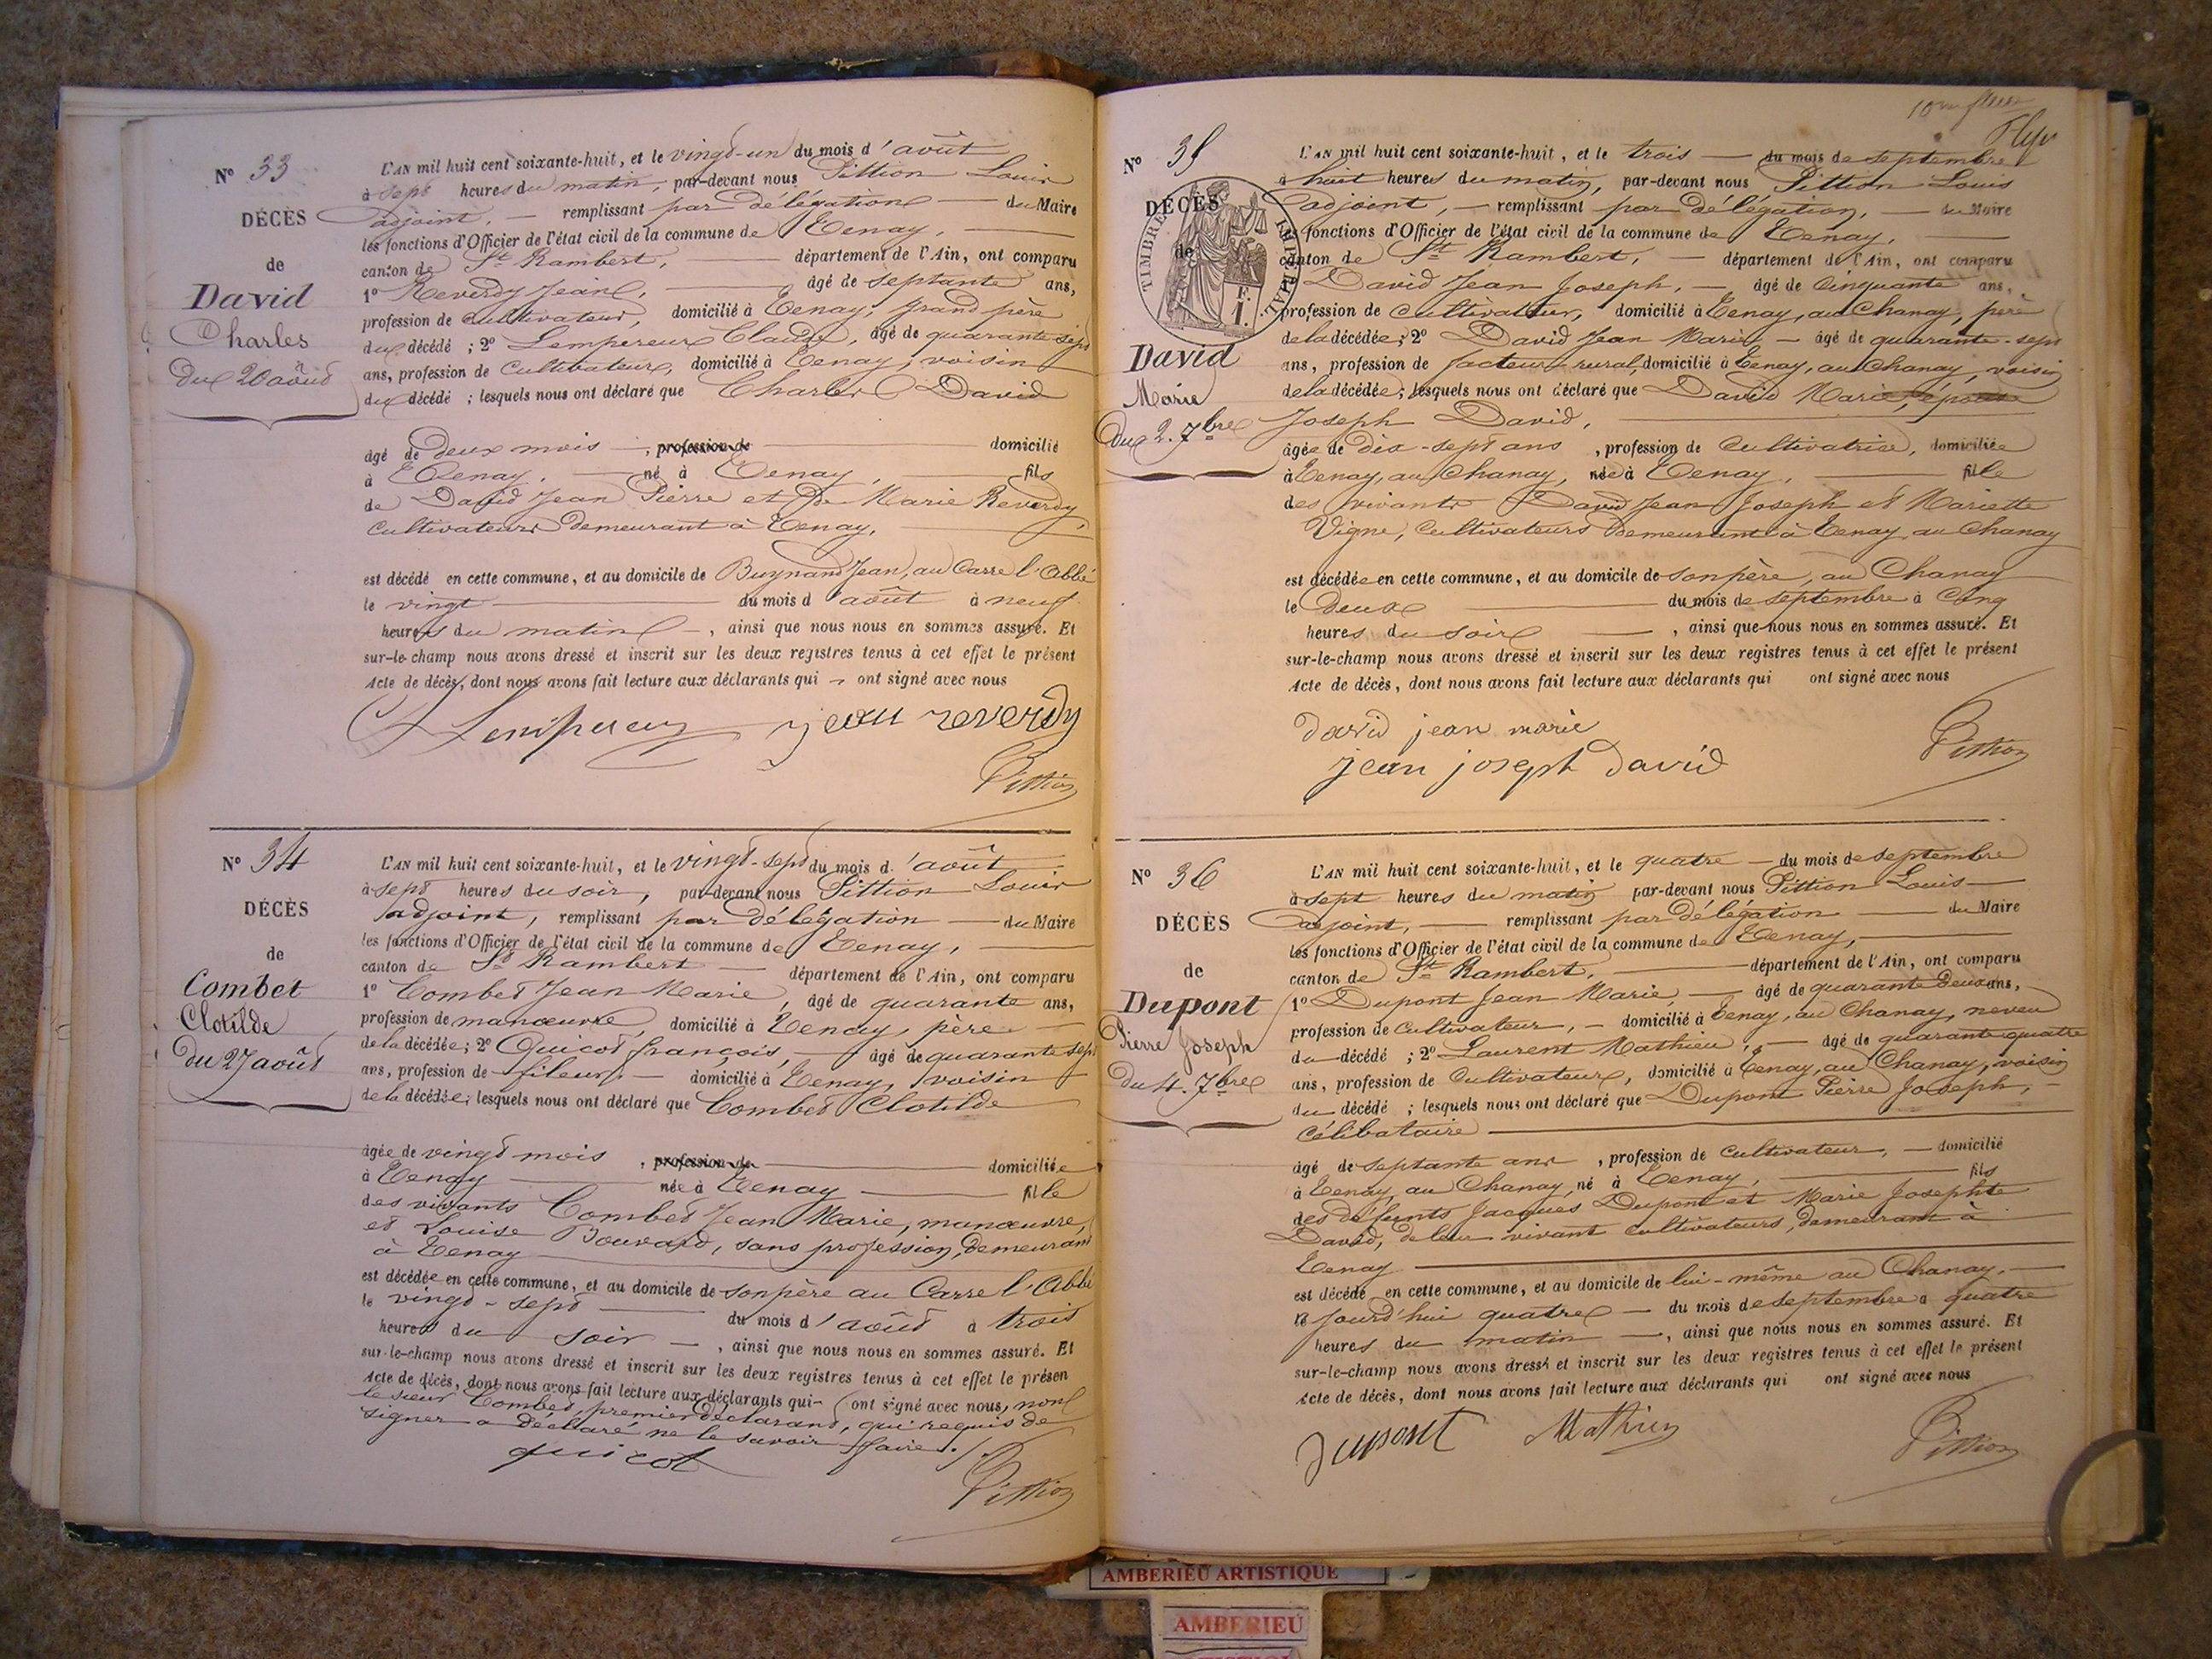 N° 33
DÉCÈS
de
David
Charles
Du 20 août
L'AN mil huit cent soixante-huit, et le vingt-un du mois d'août
à sept heures du matin, par-devant nous Pittion Louis
adjoint, — remplissant par délégation — du Maire
les fonctions d'Officier de l'état civil de la commune de Tenay,
canton de St Rambert, département de l'Ain, ont comparu
1° Reverdy Jean, âgé de septante ans,
profession de cultivateur, domicilié à Tenay, grand père
du décédé ; 2° Lempereur Claude, âgé de quarante sept
ans, profession de cultivateur, domicilié à Tenay, voisin
du décédé ; lesquels nous ont déclaré que Charles David
âgé de deux mois , profession de domicilié
à Tenay, né à Tenay, fils
de David Jean Pierre et de Marie Reverdy,
cultivateurs demeurant à Tenay,
est décédé en cette commune, et au domicile de Buynand Jean, au Carre l'Abbé
le vingt du mois d'août à neuf
heures du matin —, ainsi que nous nous en sommes assuré. Et
sur-le-champ nous avons dressé et inscrit sur les deux registres tenus à cet effet le présent
Acte de décès, dont nous avons fait lecture aux déclarants qui ont signé avec nous
Lempereur jean reverdy
Pittion
N° 34
DÉCÈS
de
Combet
Clotilde
Du 27 août
L'AN mil huit cent soixante-huit, et le vingt-sept du mois d'août
à sept heures du soir, par-devant nous Pittion Louis
adjoint, remplissant par délégation — du Maire
les fonctions d'Officier de l'état civil de la commune de Tenay,
canton de St Rambert — département de l'Ain, ont comparu
1° Combet Jean Marie, âgé de quarante ans,
profession de manœuvre, domicilié à Tenay, père
de la décédée; 2° Quicot françois, — âgé de quarante sept
ans, profession de fileur, — domicilié à Tenay, voisin
de la décédée; lesquels nous ont déclaré que Combet Clotilde
âgée de vingt mois , profession de domiciliée
à Tenay née à Tenay fille
des vivants Combet Jean Marie, manœuvre,
et Louise Bouvard, sans profession, demeurant
à Tenay
est décédée en cette commune, et au domicile de son père au Carre l'Abbé
le vingt-sept du mois d'août à trois
heures du soir —, ainsi que nous nous en sommes assuré. Et
sur-le-champ nous avons dressé et inscrit sur les deux registres tenus à cet effet le présen
Acte de décès, dont nous avons fait lecture aux déclarants qui ont signé avec nous, non
le sieur Combet, premier déclarant, qui requis de
signer a déclaré ne le savoir faire./.
quicot
Pittion
N° 35
DÉCÈS
de
TIMBRE IMPÉRIAL
F.
1.
David
Marie
Du 2. 7bre
L'AN mil huit cent soixante-huit, et le trois — du mois de septembre
à huit heures du matin, par-devant nous Pittion Louis
adjoint, — remplissant par délégation, — du Maire
les fonctions d'Officier de l'état civil de la commune de Tenay,
canton de St Rambert, — département de l'Ain, ont comparu
David Jean Joseph, — âgé de cinquante ans,
profession de cultivateur, domicilié à Tenay, au Chanay, père
de la décédée; 2° David Jean Marie — âgé de quarante-sept
ans, profession de facteur rural, domicilié à Tenay, au Chanay, voisin
de la décédée; lesquels nous ont déclaré que David Marie, épouse
Joseph David,
âgée de dix-sept ans , profession de cultivatrice, domiciliée
à Tenay, au Chanay, née à Tenay, fille
des vivants David Jean Joseph et Mariette
Vigne, cultivateurs demeurant à Tenay au Chanay
est décédée en cette commune, et au domicile de son père, au Chanay
le Deux du mois de septembre à Cinq
heures du soir —, ainsi que nous nous en sommes assuré. Et
sur-le-champ nous avons dressé et inscrit sur les deux registres tenus à cet effet le présent
Acte de décès, dont nous avons fait lecture aux déclarants qui ont signé avec nous
david jean marie
jean joseph david
Pittion
N° 36
DÉCÈS
de
Dupont
Pierre Joseph
Du 4. 7bre
L'AN mil huit cent soixante-huit, et le quatre — du mois de septembre
à sept heures du matin par-devant nous Pittion Louis —
adjoint, — remplissant par délégation — du Maire
les fonctions d'Officier de l'état civil de la commune de Tenay,
canton de St Rambert, département de l'Ain, ont comparu
1° Dupont Jean Marie, — âgé de quarante deux ans,
profession de cultivateur, — domicilié à Tenay, au Chanay, neveu
du décédé ; 2° Laurent Mathieu, — âgé de quarante quatre
ans, profession de Cultivateur, domicilié à Tenay, au Chanay, voisin
du décédé ; lesquels nous ont déclaré que Dupont Pierre Joseph, —
célibataire
âgé de septante ans , profession de cultivateur, — domicilié
à Tenay, au Chanay, né à Tenay, fils
des défunts Jacques Dupont et Marie Josephte
David, de leur vivant cultivateurs, demeurant à
Tenay
est décédé en cette commune, et au domicile de lui-même au Chanay, —
le jourd'hui quatre — du mois de septembre à quatre
heures du matin —, ainsi que nous nous en sommes assuré. Et
sur-le-champ nous avons dressé et inscrit sur les deux registres tenus à cet effet le présent
Acte de décès, dont nous avons fait lecture aux déclarants qui ont signé avec nous
Dupont Mathieu
Pittion
AMBERIEU ARTISTIQUE
AMBERIEU